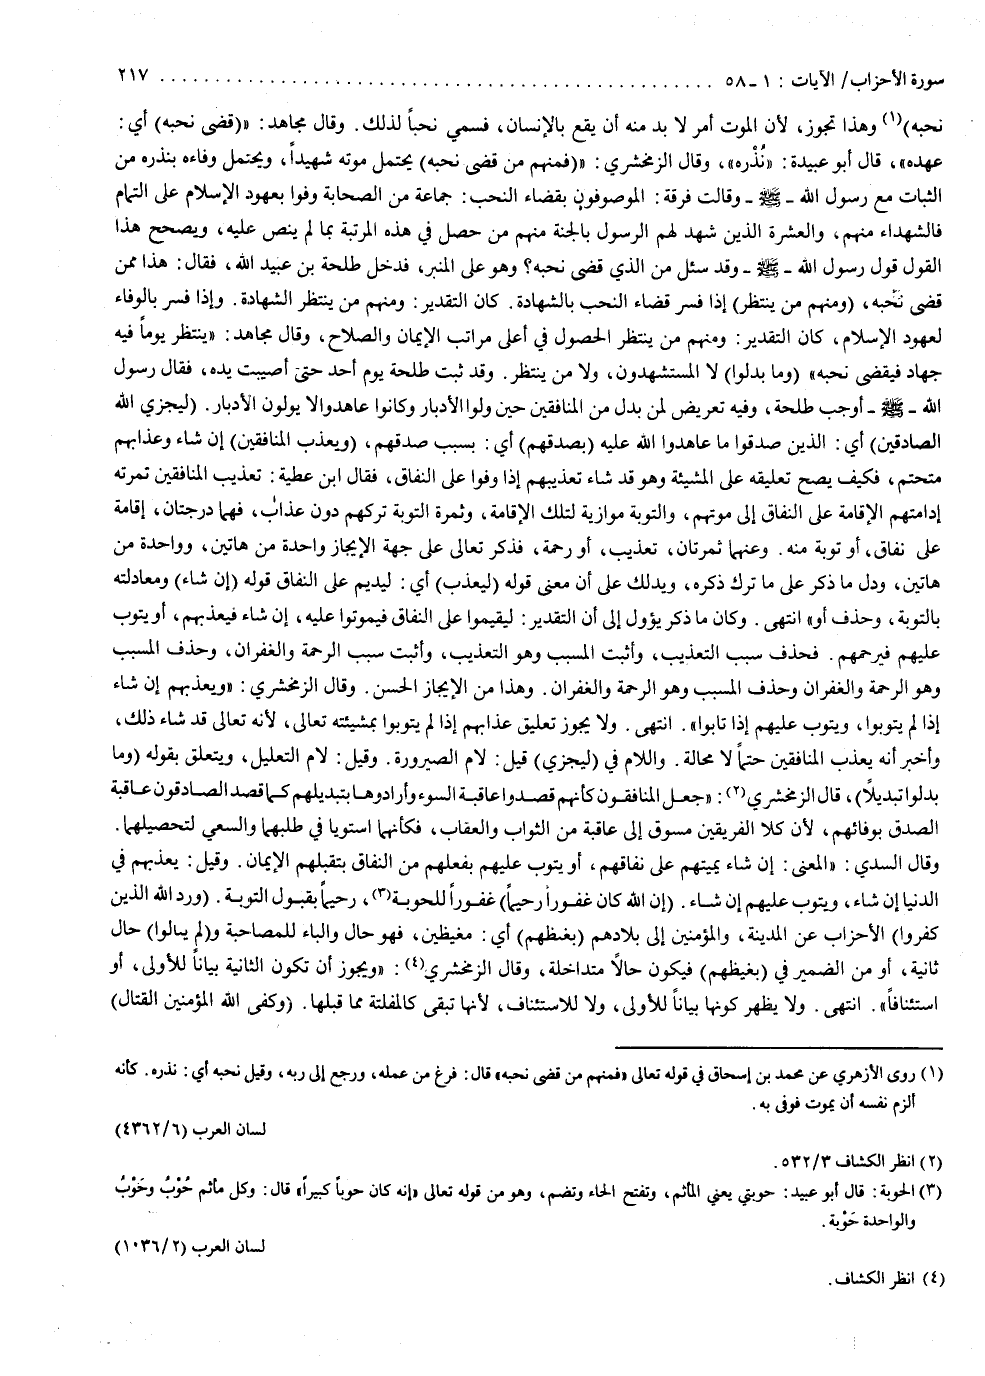 سورة الأحزاب/ الآيات : ١ ـ ٥٨ ............................................. ٢١٧
نحبه)(١) وهذا تجوز، لأن الموت أمر لا بد منه أن يقع بالإنسان، فسمي نحباً لذلك. وقال مجاهد: «(قضى نحبه) أي:
عهده»، قال أبو عبيدة: «نُذْره»، وقال الزمخشري: «(فمنهم من قضى نحبه) يحتمل موته شهيداً، ويحتمل وفاءه بنذره من
الثبات مع رسول الله ـ ﷺ ـ وقالت فرقة: الموصوفون بقضاء النحب: جماعة من الصحابة وفوا بعهود الإسلام على التمام
فالشهداء منهم، والعشرة الذين شهد لهم الرسول بالجنة منهم من حصل في هذه المرتبة بما لم ينص عليه، ويصحح هذا
القول قول رسول الله ـ ﷺ ـ وقد سئل من الذي قضى نحبه؟ وهو على المنبر، فدخل طلحة بن عبيد الله، فقال: هذا ممن
قضى نحْبه، (ومنهم من ينتظر) إذا فسر قضاء النحب بالشهادة. كان التقدير: ومنهم من ينتظر الشهادة. وإذا فسر بالوفاء
لعهود الإسلام، كان التقدير: ومنهم من ينتظر الحصول في أعلى مراتب الإيمان والصلاح، وقال مجاهد: «ينتظر يوماً فيه
جهاد فيقضى نحبه» (وما بدلوا) لا المستشهدون، ولا من ينتظر. وقد ثبت طلحة يوم أحد حتى أصيبت يده، فقال رسول
الله ـ ﷺ ـ أوجب طلحة، وفيه تعريض لمن بدل من المنافقين حين ولوا الأدبار وكانوا عاهدوا لا يولون الأدبار. (ليجزي الله
الصادقين) أي: الذين صدقوا ما عاهدوا الله عليه (بصدقهم) أي: بسبب صدقهم، (ويعذب المنافقين) إن شاء وعذابهم
متحتم، فكيف يصح تعليقه على المشيئة وهو قد شاء تعذيبهم إذا وفوا على النفاق، فقال ابن عطية: تعذيب المنافقين ثمرته
إدامتهم الإقامة على النفاق إلى موتهم، والتوبة موازية لتلك الإقامة، وثمرة التوبة تركهم دون عذاب، فهما درجتان، إقامة
على نفاق، أو توبة منه. وعنهما ثمرتان، تعذيب، أو رحمة، فذكر تعالى على جهة الإيجاز واحدة من هاتين، وواحدة من
هاتين، ودل ما ذكر على ما ترك ذكره، ويدلك على أن معنى قوله (ليعذب) أي: ليديم على النفاق قوله (إن شاء) ومعادلته
بالتوبة، وحذف أو» انتهى. وكان ما ذكر يؤول إلى أن التقدير: ليقيموا على النفاق فيموتوا عليه، إن شاء فيعذبهم، أو يتوب
عليهم فيرحمهم. فحذف سبب التعذيب، وأثبت المسبب وهو التعذيب، وأثبت سبب الرحمة والغفران، وحذف المسبب
وهو الرحمة والغفران وحذف المسبب وهو الرحمة والغفران. وهذا من الإيجاز الحسن. وقال الزمخشري: «ويعذبهم إن شاء
إذا لم يتوبوا، ويتوب عليهم إذا تابوا». انتهى. ولا يجوز تعليق عذابهم إذا لم يتوبوا بمشيئته تعالى، لأنه تعالى قد شاء ذلك،
وأخبر أنه يعذب المنافقين حتماً لا محالة. واللام في (ليجزي) قيل: لام الصيرورة. وقيل: لام التعليل، ويتعلق بقوله (وما
بدلوا تبديلاً)، قال الزمخشري(٢): «جعل المنافقون كأنهم قصدوا عاقبة السوء وأرادوها بتبديلهم كما قصد الصادقون عاقبة
الصدق بوفائهم، لأن كلا الفريقين مسوق إلى عاقبة من الثواب والعقاب، فكأنهما استويا في طلبهما والسعي لتحصيلهما.
وقال السدي: «المعنى: إن شاء يميتهم على نفاقهم، أو يتوب عليهم بفعلهم من النفاق بتقبلهم الإيمان. وقيل: يعذبهم في
الدنيا إن شاء، ويتوب عليهم إن شاء. (إن الله كان غفوراً رحيماً) غفوراً للحوبة(٣)، رحيماً بقبول التوبة. (ورد الله الذين
كفروا) الأحزاب عن المدينة، والمؤمنين إلى بلادهم (بغيظهم) أي: مغيظين، فهو حال والباء للمصاحبة و(لم ينالوا) حال
ثانية، أو من الضمير في (بغيظهم) فيكون حالاً متداخلة، وقال الزمخشري(٤): «ويجوز أن تكون الثانية بياناً للأولى، أو
استئنافاً». انتهى. ولا يظهر كونها بياناً للأولى، ولا للاستئناف، لأنها تبقى كالمفلتة مما قبلها. (وكفى الله المؤمنين القتال)
(١) روى الأزهري عن محمد بن إسحاق في قوله تعالى «فمنهم من قضى نحبه» قال: فرغ من عمله، ورجع إلى ربه، وقيل نحبه أي: نذره. كأنه
ألزم نفسه أن يموت فوفى به.
لسان العرب (٤٣٦٢/٦)
(٢) انظر الكشاف ٥٣٢/٣.
(٣) الحوبة: قال أبو عبيد: حوبتي يعني المأثم، وتفتح الحاء وتضم، وهو من قوله تعالى «إنه كان حوباً كبيراً» قال: وكل مأثم حُوْبٌ وحَوْبٌ
والواحدة حَوْبة.
لسان العرب (١٠٣٦/٢)
(٤) انظر الكشاف.